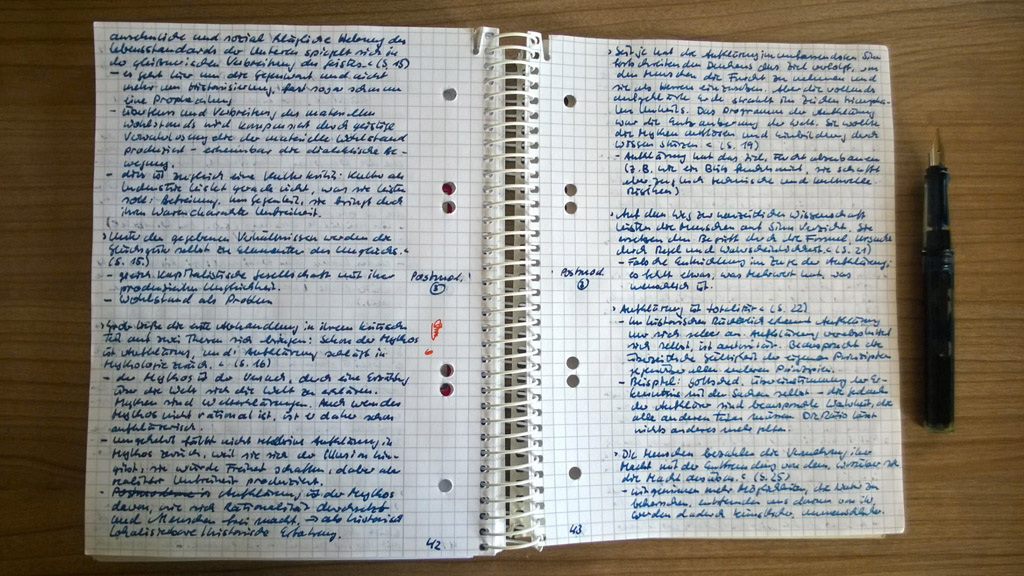 ansehnliche und sozial klägliche Hebung des
Lebensstandards der Unteren spiegelt sich in
der gleißnerischen Verbreitung des Geistes." (S. 15)
- es geht hier um die Gegenwart und nicht
mehr um Historisierung, fast sogar schon um
eine Prophezeiung
- und Verbreitung des materiellen
Wohlstands wird durch geistige
die materielle Wohlstand
produziert - die dialektische Be-
wegung.
- dies ist zugleich eine Kulturkritik: Kultur als
Industrie leistet gerade nicht, was sie leisten
soll: Befreiung. Im Gegenteil, sie bringt durch
ihren Warencharakter Unfreiheit.
"Unter den gegebenen Verhältnissen werden die
Glücksgüter selbst zu Elementen des Unglücks."
(S. 15)
- kapitalistische Gesellschaft mit ihrer
produzierten Ungleichheit.
- Wohlstand als Problem
Postmod.
8
"Grob ließe die erste Abhandlung in ihrem kritischen
Teil auf zwei Thesen sich bringen: Schon der Mythos
ist Aufklärung, und: Aufklärung schlägt in
Mythologie zurück." (S. 16)
- der Mythos ist der Versuch, durch eine Erzählung
über die Welt sich die Welt zu erklären.
Mythen sind Welterklärungen. Auch wenn der
Mythos nicht rational ist, ist er daher schon
aufklärerisch.
- umgekehrt fällt nicht Aufklärung in
Mythos zurück, weil sie sich der Illusion hin-
gibt, sie würde Freiheit schaffen, dabei aber
Unfreiheit produziert.
- Aufklärung ist der Mythos
davon, wie sich Rationalität durchsetzt
und Menschen frei macht, → als historisch
lokalisierbare historische Erfahrung.
42
"Seit je hat die Aufklärung im umfassendsten Sinn
fortschreitenden Denkens das Ziel verfolgt, von
den Menschen die Furcht zu nehmen und
sie als Herren einzusetzen. Aber die vollends
aufgeklärte Erde strahlt im Zeichen triumphalen
Unheils. Das Programm der Aufklärung
war die Entzauberung der Welt. Sie wollte
die Mythen auflösen und Einbildung durch
Wissen stürzen." (S. 19)
- Aufklärung hat das Ziel, Furcht abzubauen
(z.B. wie ein Blitz funktioniert), sie schafft
aber zugleich technische und kulturelle
Risiken)
"Auf dem Weg zur neuzeitlichen Wissenschaft
leisten die Menschen auf Sinn Verzicht. Sie
ersetzen den Begriff durch die Formel, Ursache
durch Regel und Wahrscheinlichkeit." (S. 21)
- Falsche Entwicklung im Zuge der Aufklärung:
es fehlt etwas, was
menschlich ist.
Postmod
8
"Aufklärung ist totalitär." (S. 22)
- Im historischen Rückblick Aufklärung
nur sich selber an. Aufklärung verabsolutiert
sich selbst, ist autoritär. Beansprucht die
überzeitliche Gültigkeit der eigenen Prinzipien
gegenüber allen anderen Prinzipien.
- Beispiel: Gottsched, Übereinstimmung der Er-
kenntnis mit den Sachen selbst - die Gedanken
der Aufklärung sind beanspruchte Wahrheit, die
alle anderen teilen müssen. Die Ratio lässt
nichts anderes mehr gelten.
"Die Menschen bezahlen die Vermehrung ihrer
Macht mit der Entfremdung von dem, worüber sie
die Macht ausüben." (S. 25)
- wir gewinnen mehr Möglichkeiten, die Natur zu
beherrschen, entfernen uns davon aber,
werden dadurch künstlicher, unmenschlicher.
43